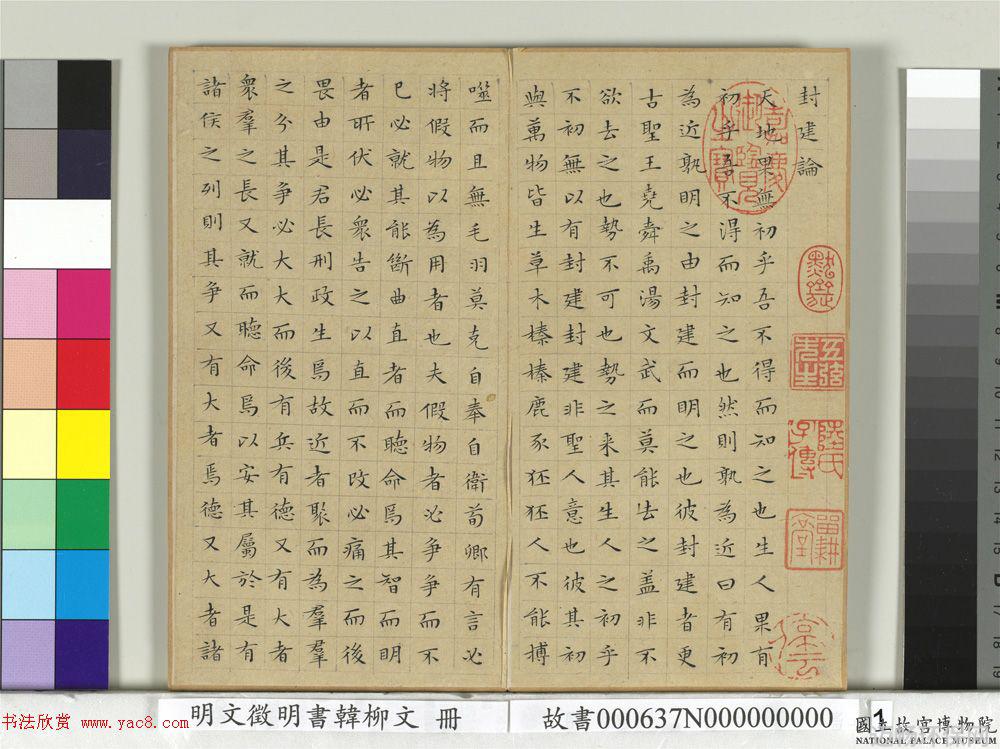 封建論
天地果無初乎吾不得而知之也生人果有
初乎吾不得而知之也然則孰為近曰有初
為近孰明之由封建而明之也彼封建者更
古聖王堯舜禹湯文武而莫能去之蓋非不
欲去之也勢不可也勢之来其生人之初乎
不初無以有封建封建非聖人意也彼其初
與萬物皆生草木榛榛鹿豕狉狉人不能搏
噬而且無毛羽莫克自奉自衛荀卿有言必
將假物以為用者也夫假物者必争争而不
已必就其能斷曲直者而聽命焉其智而明
者所伏必衆告之以直而不改必痛之而後
畏由是君長刑政生焉故近者聚而為羣羣
之分其争必大大而後有兵有德又有大者
衆羣之長又就而聽命焉以安其屬於是有
諸侯之列則其争又有大者焉德又大者諸
嘉慶御覽之寶
五湖
陸氏子傳
明文徵明書韓柳文 冊
故書000637N000000000
1
國立故宮博物院
NATIONAL PALACE MUSEUM
书法欣赏 www.yac8.com